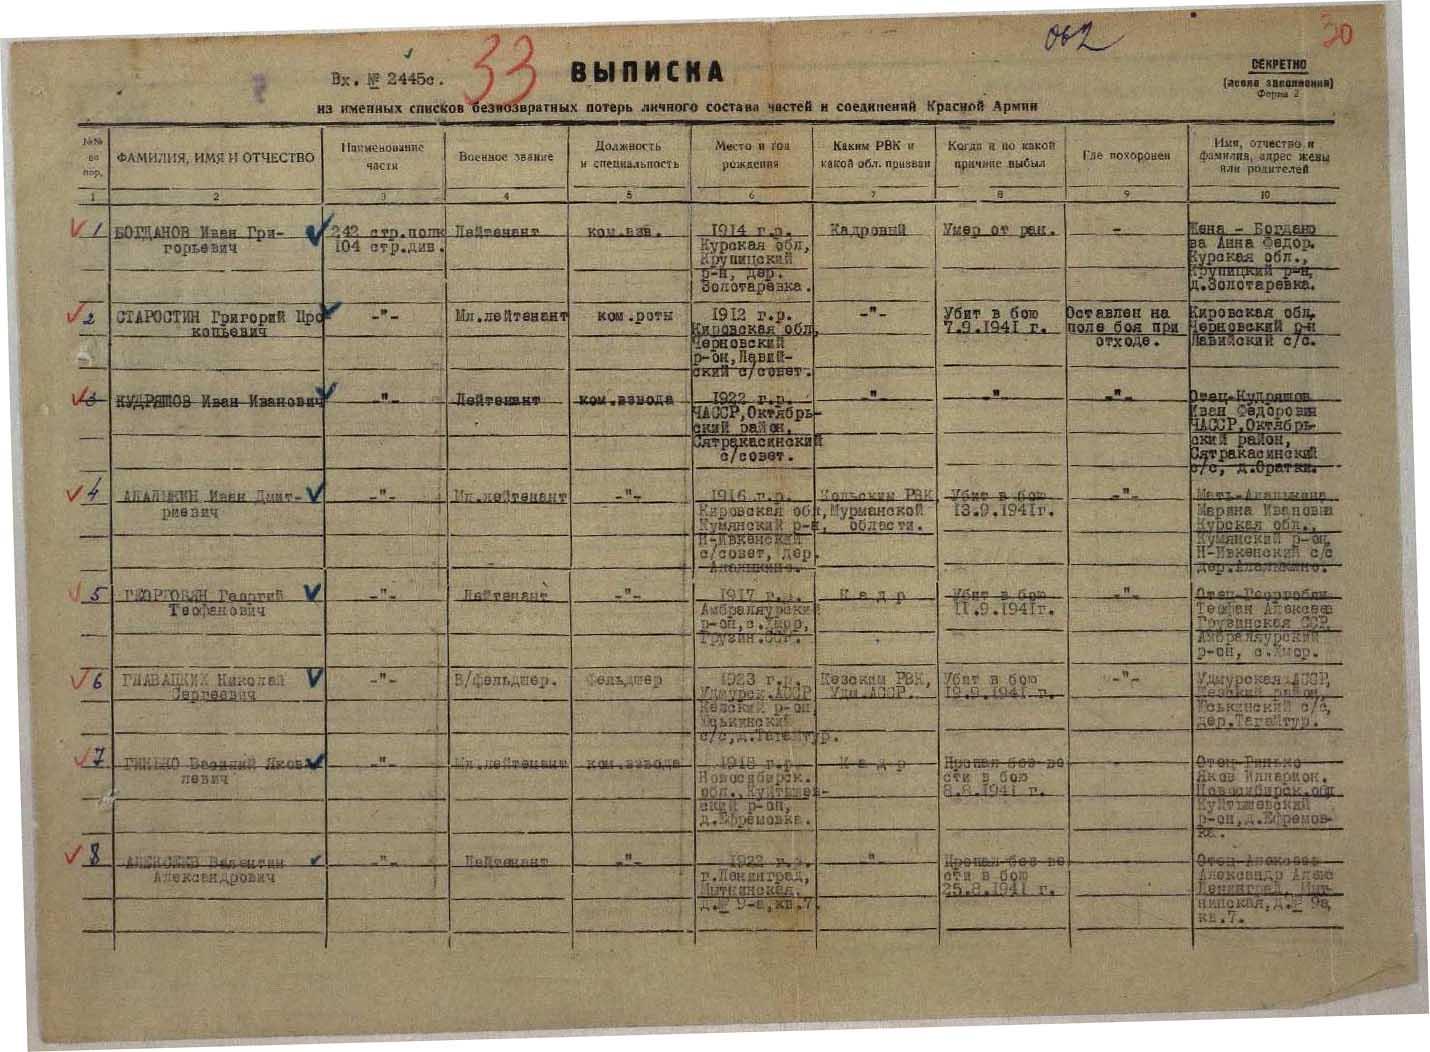 062
30
Вх. № 2445с.
33
ВЫПИСКА
СЕКРЕТНО
(после заполнения)
Форма 2
из именных списков безвозвратных потерь личного состава частей и соединений Красной Армии
№№ по пор.
ФАМИЛИЯ, ИМЯ И ОТЧЕСТВО
Наименование части
Военное звание
Должность и специальность
Место и год рождения
Каким РВК и какой обл. призван
Когда и по какой причине выбыл
Где похоронен
Имя, отчество и фамилия, адрес жены или родителей
1 2 3 4 5 6 7 8 9 10
1 БОГДАНОВ Иван Гри- 242 стр.полк Лейтенант ком.взв. 1914 г.р. Кадровый Умер от ран. - Жена - Богдано
горьевич 104 стр.див. Курская обл, ва Анна Федор.
Крупицский Курская обл.,
р-н, дер. Крупицкий р-н,
Золотаревка. д.Золотаревка.
2 СТАРОСТИН Григорий Про -"- Мл.лейтенант ком.роты 1912 г.р. -"- Убит в бою Оставлен на Кировская обл,
копьевич Кировская обл, 7.9.1941 г. поле боя при Черновский р-н
Черновский отходе. Лавийский с/с.
р-он, Лавий-
ский с/совет.
3 КУДРЯШОВ Иван Иванович -"- Лейтенант ком.взвода 1922 г.р. -"- -"- -"- Отец-Кудряшов
ЧАССР,Октябрь- Иван Федорович
ский район, ЧАССР,Октябрь-
Сятракасинский ский район,
с/совет. Сятракасинский
с/с, д.Оратки.
4 АПАЛЬКИН Иван Дмит- -"- Мл.лейтенант -"- 1916 г.р. Кольским РВК Убит в бою -"- Мать-Апалькина
риевич Кировская обл, Мурманской 13.9.1941г. Марина Ивановна
Кумянский р-н, области. Курская обл.,
Н-Ивкенский Кумянский р-он,
с/совет, дер. Н-Ивкенский с/с
дер.
5 Георгий -"- Лейтенант -"- 1917 г.р. Кадр Убит в бою -"- Отец
Теофанович Амбралаурский 11.9.1941г. Теофан Алексеев
р-он,с.Хмор, Грузинская ССР,
Грузин.ССР. Амбралаурский
р-он, с.Хмор.
6 ГЛАВАЦКИХ Николай -"- В/фельдшер. Фельдшер 1923 г.р. Кезским РВК, Убит в бою -"- Удмурская АССР,
Сергеевич Удмурск.АССР Удм.АССР. 19.9.1941 г. Кезский район,
Кезский р-он, Юськинский с/с,
Юськинский дер.Тагайтур.
с/с,д.Тагайтур.
7 ГИНЬКО Василий Яков -"- Мл.лейтенант ком.взвода 1918 г.р. Кадр Пропал без ве - Отец
левич Новосибирск. сти в бою Яков Илларион.
обл.,Куйтышев- 8.8.1941 г. Новосибирск.обл
ский р-он, Куйтышевский
д.Ефремовка. р-он,д.Ефремов-
ка.
8 АЛЕКСЕЕВ Валентин -"- Лейтенант -"- 1922 г.р. -"- Пропал без ве - Отец-Алексеев
Александрович г.Ленинград, сти в бою Александр Алекс
Мытнинская, 25.8.1941 г. Ленинград, Мыт-
д.№ 9-а,кв.7. нинская,д.№ 9а,
кв.7.